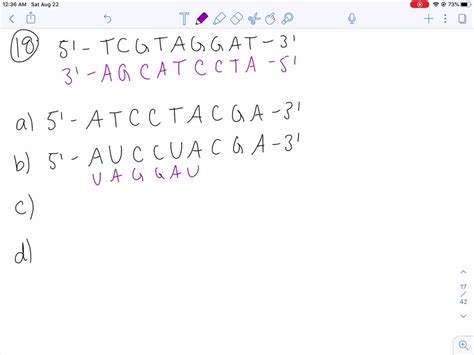 12:36 AM Sat Aug 22
73%
T
18) 5'-TCGTAGGAT-3'
3'-AGCATCCTA-5'
a) 5'-ATCCTACGA-3'
b) 5'-AUCCUACGA-3'
UAGGAU
c)
d)
17
/
42